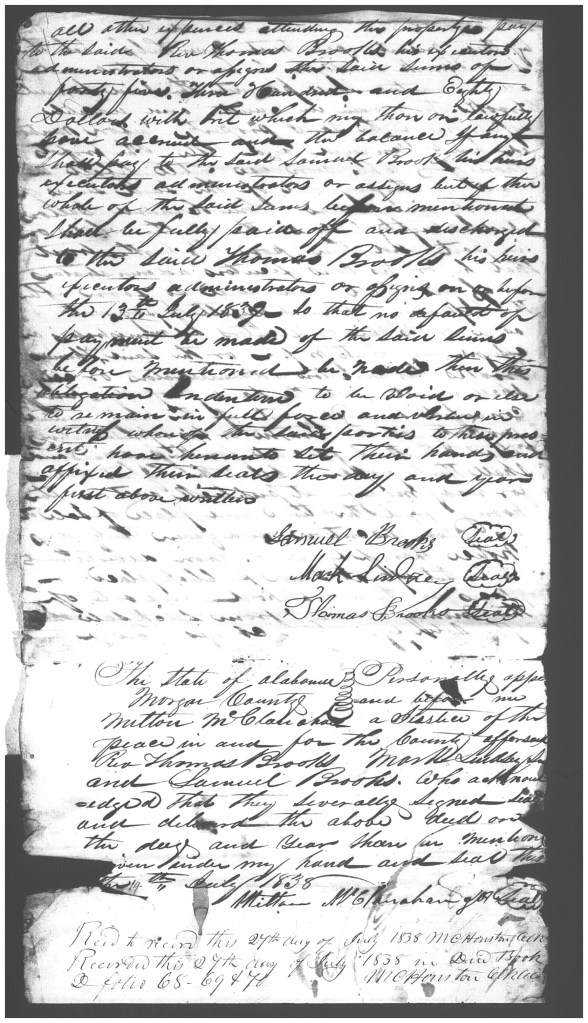 all other expences attending the property pay
to the said Rev Thomas Brooks his executors
administrators or assigns the said sums of
forty five. Three Hundred and Eighty
Dollars with int which may thon on lawfully
have accrued and the balance if any
shall pay to the said Samuel Brooks his heirs
executors administrators or assigns but if the
whole of the said sums before mentioned
shall be fully paid off and discharged
to the said Thomas Brooks his heirs
executors administrators or assigns on or before
the 13th July 1839 So that no default of
payment be made of the said sums
before mentioned be made then this
obligation Indenture to be void or else
to remain in full force and virtue in
witness whereof the said parties to these pres-
ents have hereunto set their hands and
affixed their seals the day and year
first above written
Samuel Brooks Seal
Mark Lindsey Seal
Thomas Brooks Seal
The State of alabama Personally appe
Morgan County and before me
Milton McClanahan a Justice of the
peace in and for the County aforsaid
Rev Thomas Brooks Mark Lindsey
and Samuel Brooks. Who acknowl
=edged that they severally signed Seal
and delivered the above deed on
the day and year thare in mention
Given under my hand and seal this
the 14th July 1838
Milton McClanahan JP Seal
Recd to record this 27th day of July 1838 MC Houston Clk
Recorded this 27th day of July 1838 in Deed Book
D folio 68-69 & 70 MC Houston Clk